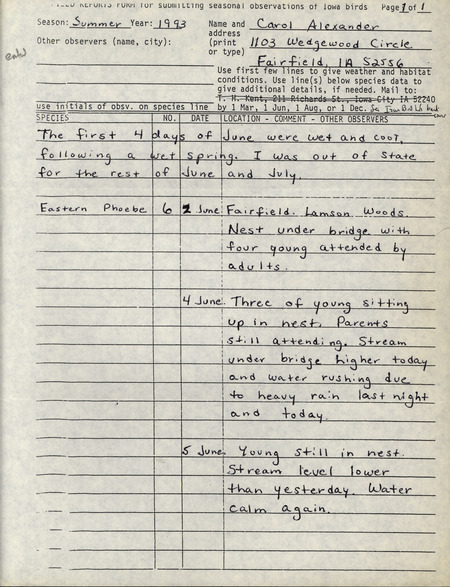 FIELD REPORTS FORM for submitting seasonal observations of Iowa birds Page 1 of 1
Season: Summer Year: 1993 Name and Carol Alexander
address
Other observers (name, city): (print 1103 Wedgewood Circle
or type)
Fairfield, IA 52556
Use first few lines to give weather and habitat
conditions. Use line(s) below species data to
give additional details, if needed. Mail to:
T. H. Kent, 211 Richards St., Iowa City IA 52240
use initials of obsv. on species line by 1 Mar, 1 Jun, 1 Aug, or 1 Dec. See Iowa Bird Life back
SPECIES NO. DATE LOCATION - COMMENT - OTHER OBSERVERS
The first 4 days of June were wet and cool,
following a wet spring. I was out of state
for the rest of June and July.
Eastern Phoebe 6 2 June Fairfield. Lamson Woods.
Nest under bridge with
four young attended by
adults.
4 June. Three of young sitting
up in nest. Parents
still attending. Stream
under bridge higher today
and water rushing due
to heavy rain last night
and today.
5 June. Young still in nest.
Stream level lower
than yesterday. Water
calm again.